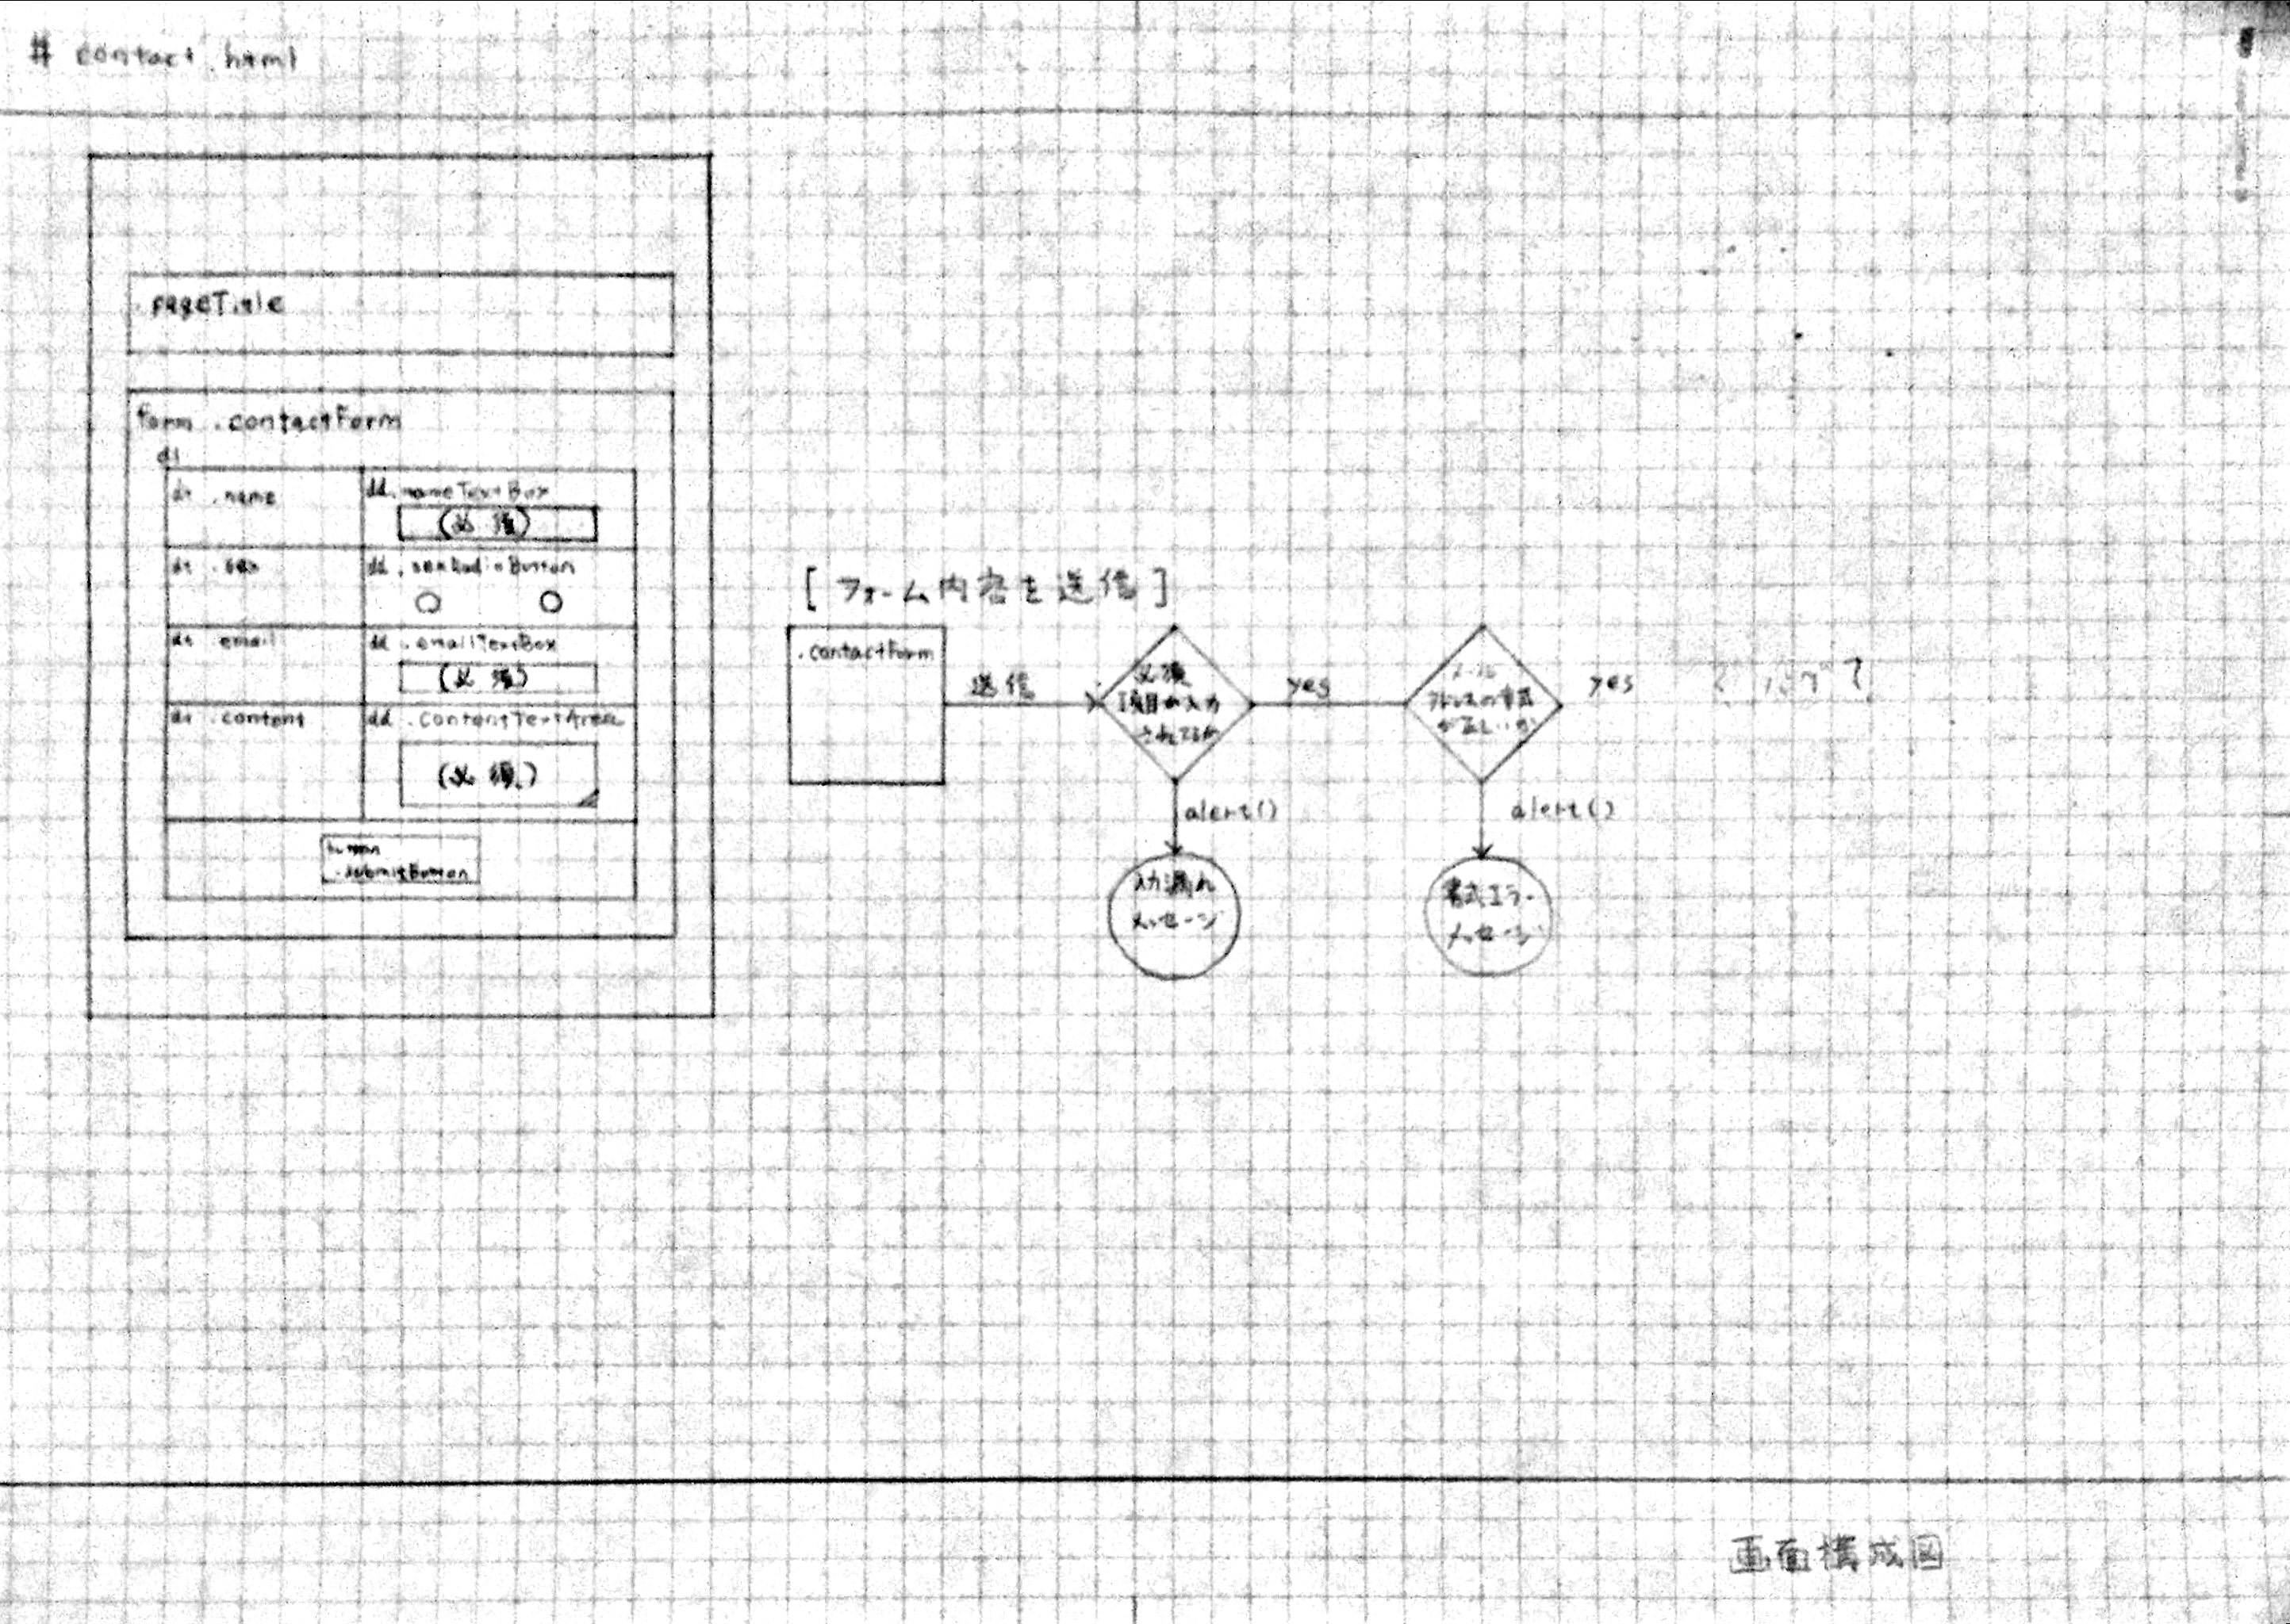 # contact.html
.pageTitle
form .contactForm
dl
dt .name
dd .nameTextBox
(必須)
dt .sex
dd .sexRadioButton
dt .email
dd .emailTextBox
(必須)
dt .content
dd .contentTextArea
(必須)
button
.submitButton
[フォーム内容を送信]
.contactForm
送信
必須
項目が入力
されてるか
yes
メール
アドレスの書式
が正しいか
yes
alert()
入力漏れ
メッセージ
alert()
書式エラー
メッセージ
画面構成図